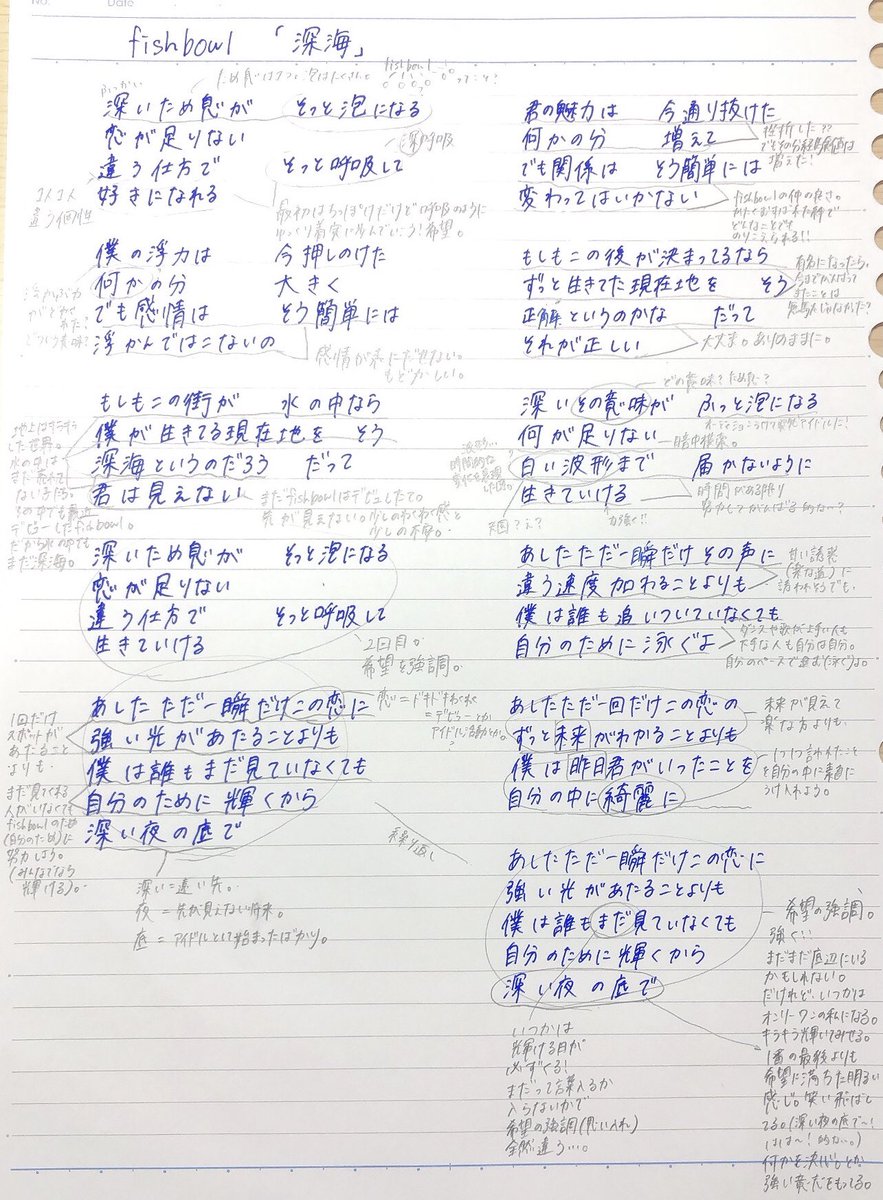 No. Date
fishbowl 「深海」
ふかい
深いため息が そっと泡になる
恋が足りない
深呼吸
違う仕方で そっと呼吸して
好きになれる
違う個性
最初はちっぽけだけど呼吸のように
ゆっくり着実に歩んでいこう！希望。
僕の浮力は 今押しのけた
何かの分 大きく
でも感情は そう簡単には
浮かんではこないの
感情が表にだせない。
もどかしい。
もしもこの街が 水の中なら
僕が生きてる現在地を そう
深海というのだろう だって
君は見えない
まだfishbowlはデビューしたて。
先が見えない。少しのわくわく感と
少しの不安。
地上はキラキラ
した世界。
水の中は
まだ
デビューしたfishbowl。
だから水の中でも
まだ深海。
深いため息が そっと泡になる
恋が足りない
違う仕方で そっと呼吸して
生きていける
2回目。
希望を強調。
あした ただ一瞬だけこの恋に
恋＝ドキドキわくわく
＝デビューとか
アイドル活動とか。
?
強い光があたることよりも
僕は誰もまだ見ていなくても
自分のために輝くから
深い夜の底で
1回だけ
スポットが
あたること
よりも
まだ見てくれる
人がいなくても
fishbowlのため
(自分のため)に
努力しよう。
(みんなでなら
輝ける)。
深い＝遠い先。
夜＝先が見えない将来。
底＝アイドルとして始まったばかり。
繰り返し
君の魅力は 今通り抜けた
何かの分 増えて
挫折した??
でもその分経験値は
増えた!
でも関係は そう簡単には
変わってはいかない
fishbowlの仲の良さ。
どんなことでも
のりこえられる!!
もしもこの後が決まってるなら
ずっと生きてた現在地を そう
正解というのかな だって
それが正しい
有名になったら、
今までがんばって
きたことは
無駄じゃなかった?
大丈夫。ありのままに。
どの意味?ため息?
深いその意味が ふっと泡になる
何が足りない
暗中模索。
白い波形まで 届かないように
生きていける
力強く!!
時間がある限り
あしたただ一瞬だけその声に
違う速度加わることよりも
甘い誘惑
(楽な道)に
誘われそうでも、
僕は誰も追いついていなくても
自分のために泳ぐよ
ダンスや歌が上手い人も
下手な人も自分は自分。
自分のペースで進む(泳ぐ)よ。
あしたただ一回だけこの恋の
ずっと未来がわかることよりも
未来が見えて
楽な方よりも、
僕は昨日君がいったことを
自分の中に綺麗に
1つ1つ言われたこと
を自分の中に素直に
うけ入れよう。
あしたただ一瞬だけこの恋に
強い光があたることよりも
僕は誰もまだ見ていなくても
自分のために輝くから
深い夜の底で
いつかは
輝ける日が
必ずくる!
まだって言葉入るか
入らないかで
希望の強調(思い入れ)
全然違う…。
希望の強調。
強く…
まだまだ底辺にいる
かもしれない。
だけれど、いつかは
オンリーワンの私になる。
キラキラ輝いてみせる。
1番の最後よりも
希望に満ちた明るい
感じ。笑い飛ばし
てる。(深い夜の底で〜!
はは〜!的な…。)
何かを決心したとか
強い意志をもってる。